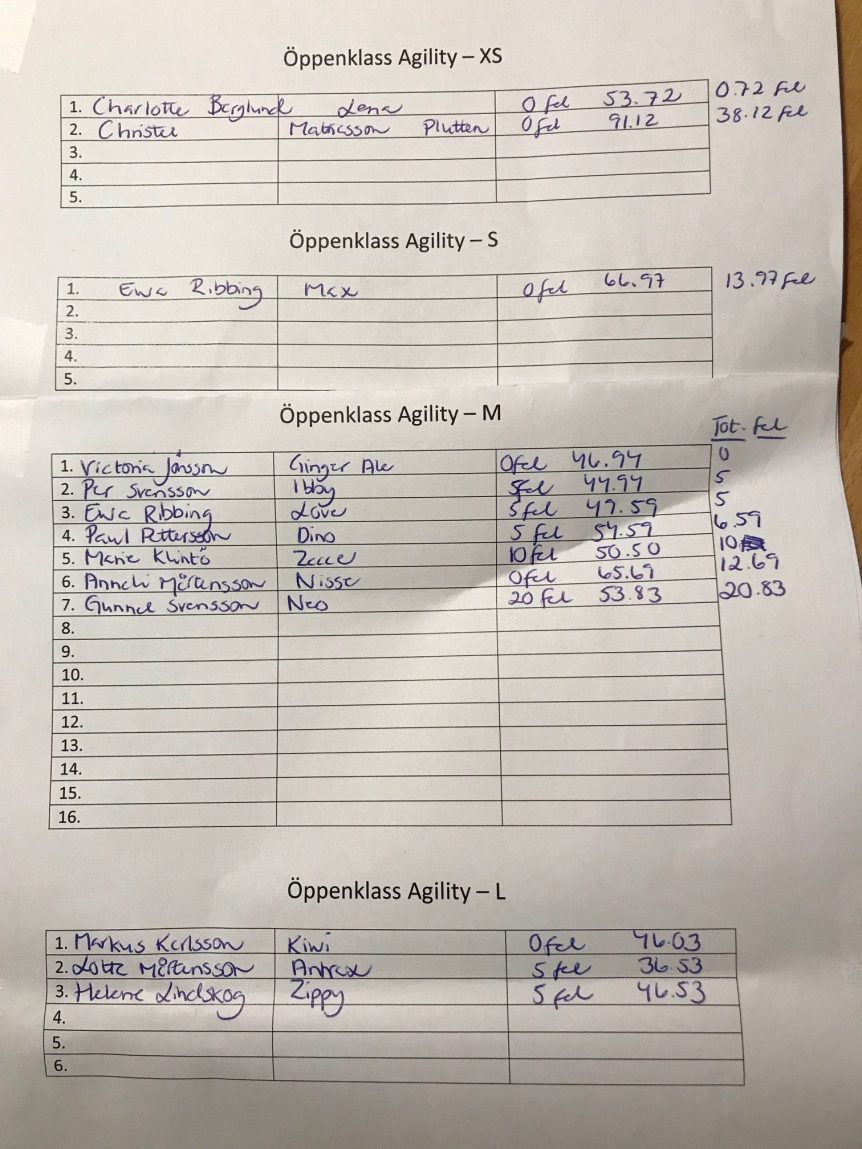 Öppenklass Agility – XS
1. Charlotte Berglund Lena 0 fel 53.72 0.72 fel
2. Christel Matisesson Plutten 0 fel 91.12 38.12 fel
3.
4.
5.
Öppenklass Agility – S
1. Ewa Ribbing Max 0 fel 66.97 13.97 fel
2.
3.
4.
5.
Öppenklass Agility – M
Tot. fel
1. Victoria Jönsson Ginger Ale 0 fel 46.94 0
2. Per Svensson Ibby 5 fel 47.94 5
3. Ewa Ribbing Love 5 fel 49.59 5
4. Paul Pettersson Dino 5 fel 54.59 6.59
5. Marie Klintö 10 fel 50.50 10
6. Anneli Mårtensson Nisse 0 fel 65.69 12.69
7. Gunnel Svensson Neo 20 fel 53.83 20.83
8.
9.
10.
11.
12.
13.
14.
15.
16.
Öppenklass Agility – L
1. Markus Karlsson Kiwi 0 fel 46.03
2. Lotta Mårtensson Antrax 5 fel 36.53
3. Helene Lindskog Zippy 5 fel 46.53
4.
5.
6.